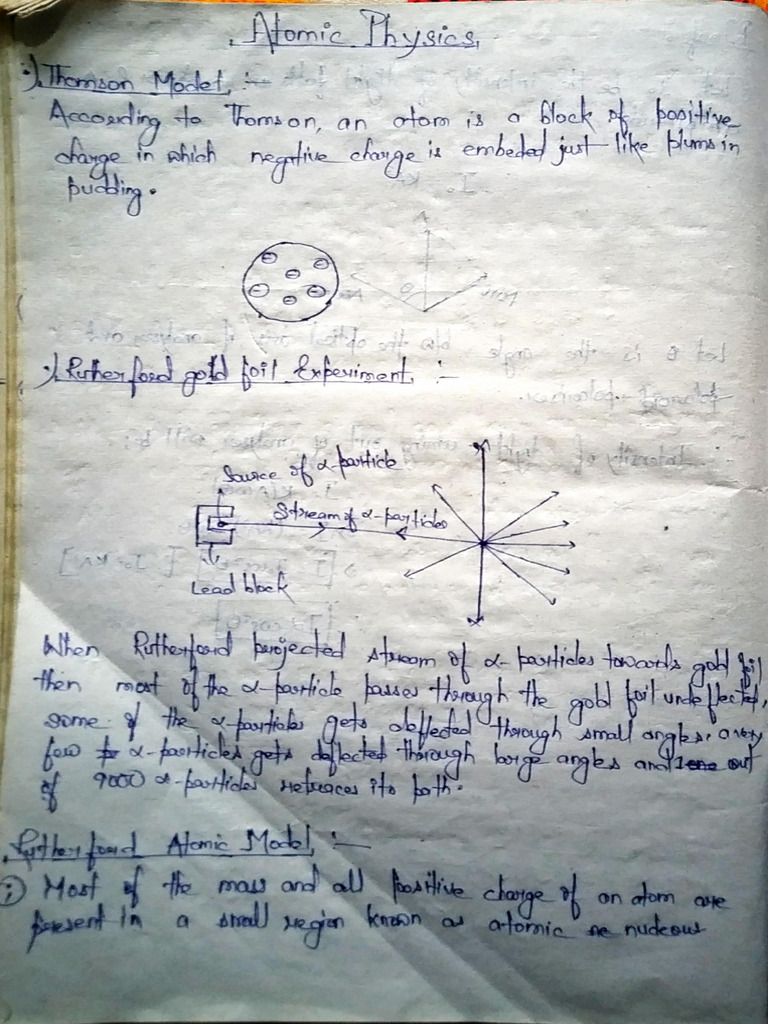 Atomic Physics
·) Thomson Model :-
According to Thomson, an atom is a block of positive
charge in which negative charge is embeded just like plums in
pudding.
·) Rutherford gold foil Experiment :-
Source of α-particle
Stream of α-particles
Lead block
When Rutherford projected stream of α-particles towards gold foil
then most of the α-particle passes through the gold foil undeflected,
some of the α-particles gets deflected through small angles, a very
few α-particles gets deflected through large angles and one out
of 9000 α-particles retraces its path.
Rutherford Atomic Model :-
i) Most of the mass and all positive charge of an atom are
present in a small region known as atomic nucleous